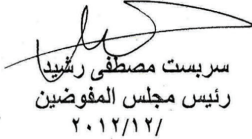 سربست مصطفى رشيد
رئيس مجلس المفوضين
٢٠١٢/١٢/